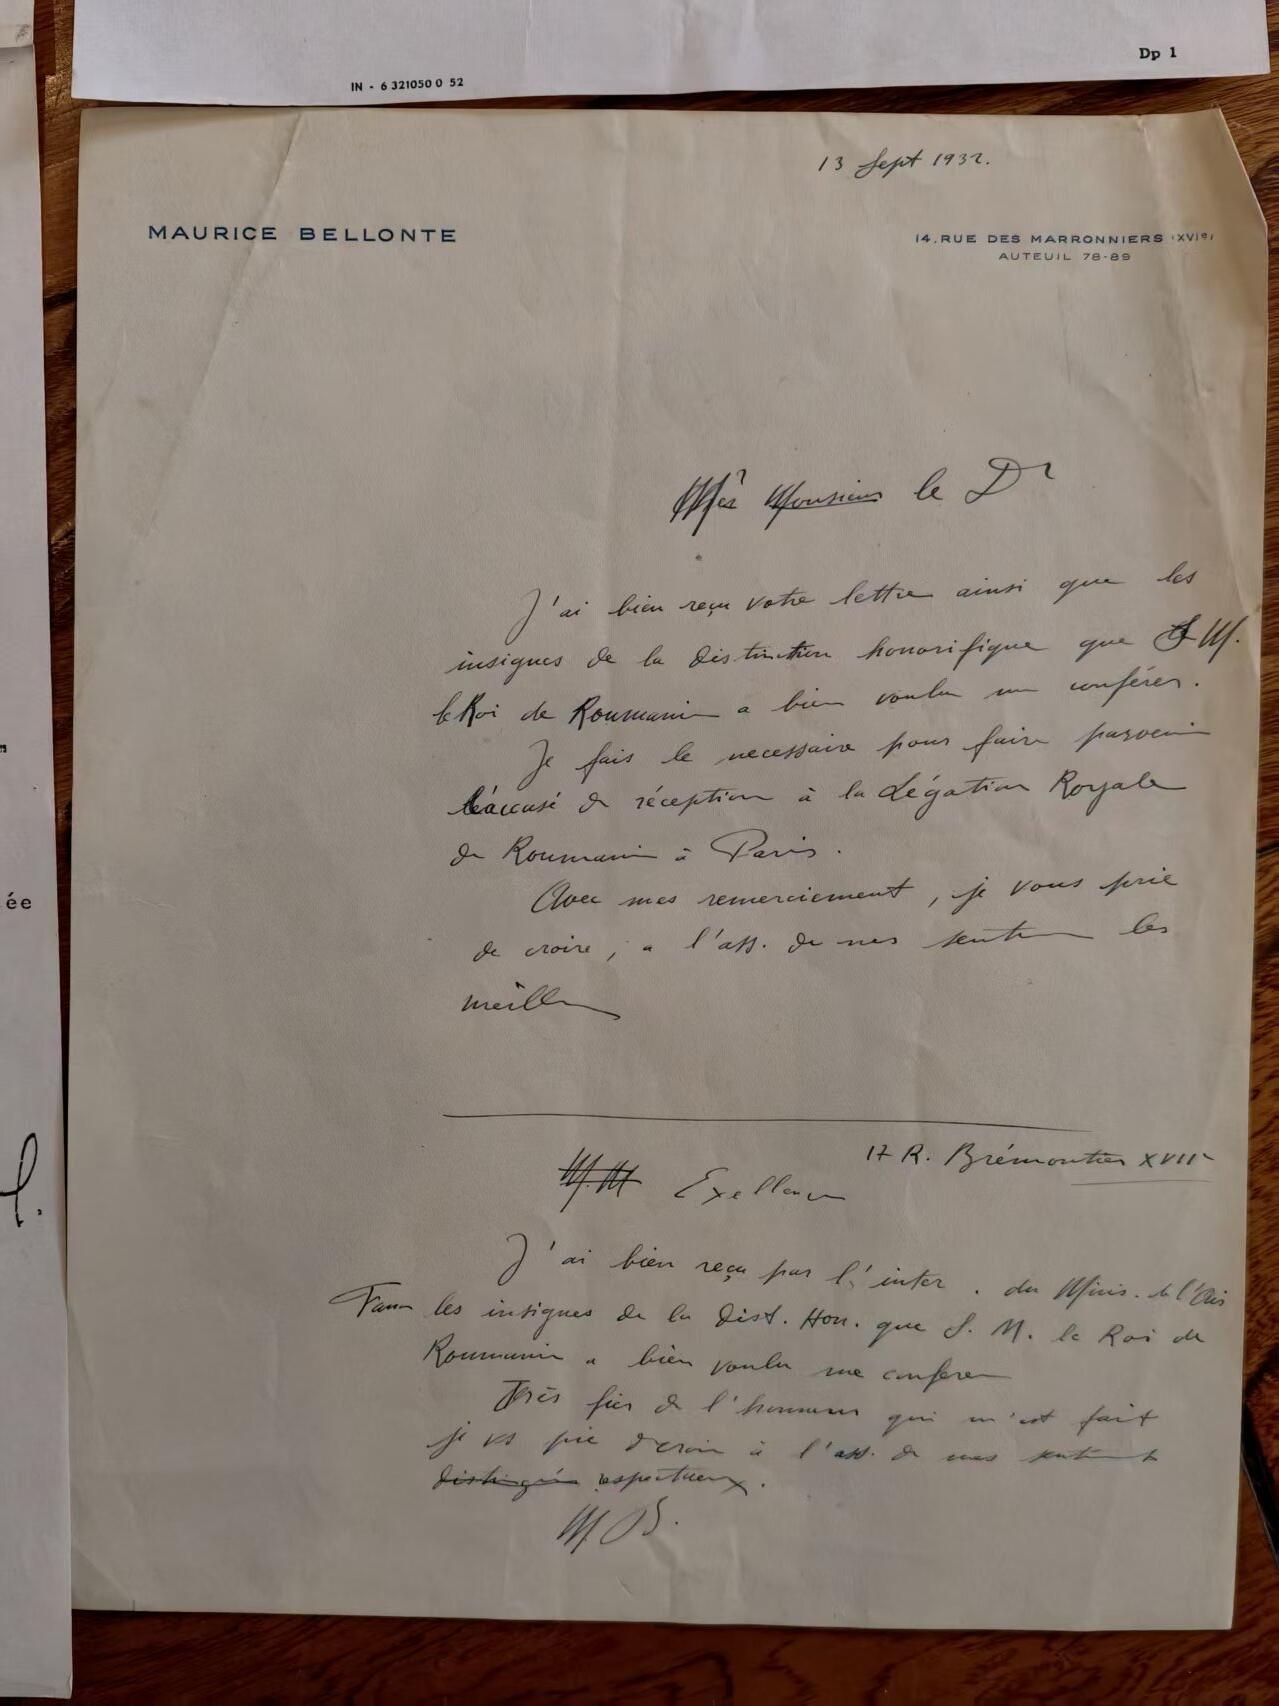 Dp 1
IN - 6 321050 0 52
13 Sept 1932.
MAURICE BELLONTE
14, RUE DES MARRONNIERS (XVIe)
AUTEUIL 78-89
Monsieur le Dr
J'ai bien reçu votre lettre ainsi que les
insignes de la distinction honorifique que S M.
le Roi de Roumanie a bien voulu me conférer.
Je fais le necessaire pour faire parvenir
l'accusé de réception à la Légation Royale
de Roumanie à Paris.
Avec mes remerciement, je vous prie
de croire, a l'ass. de mes sentim les
meill
17 R. Brémontier XVIIe
M. M Exellence
J'ai bien reçu par l'inter. du Minis. de l'Air
Fran les insignes de la Dist. Hon. que S. M. le Roi de
Roumanie a bien voulu me conferer
Très fier de l'honneur qui m'est fait
je vs prie d croire à l'ass. de mes sentiment
distingués respectueux.
M. B.
ée